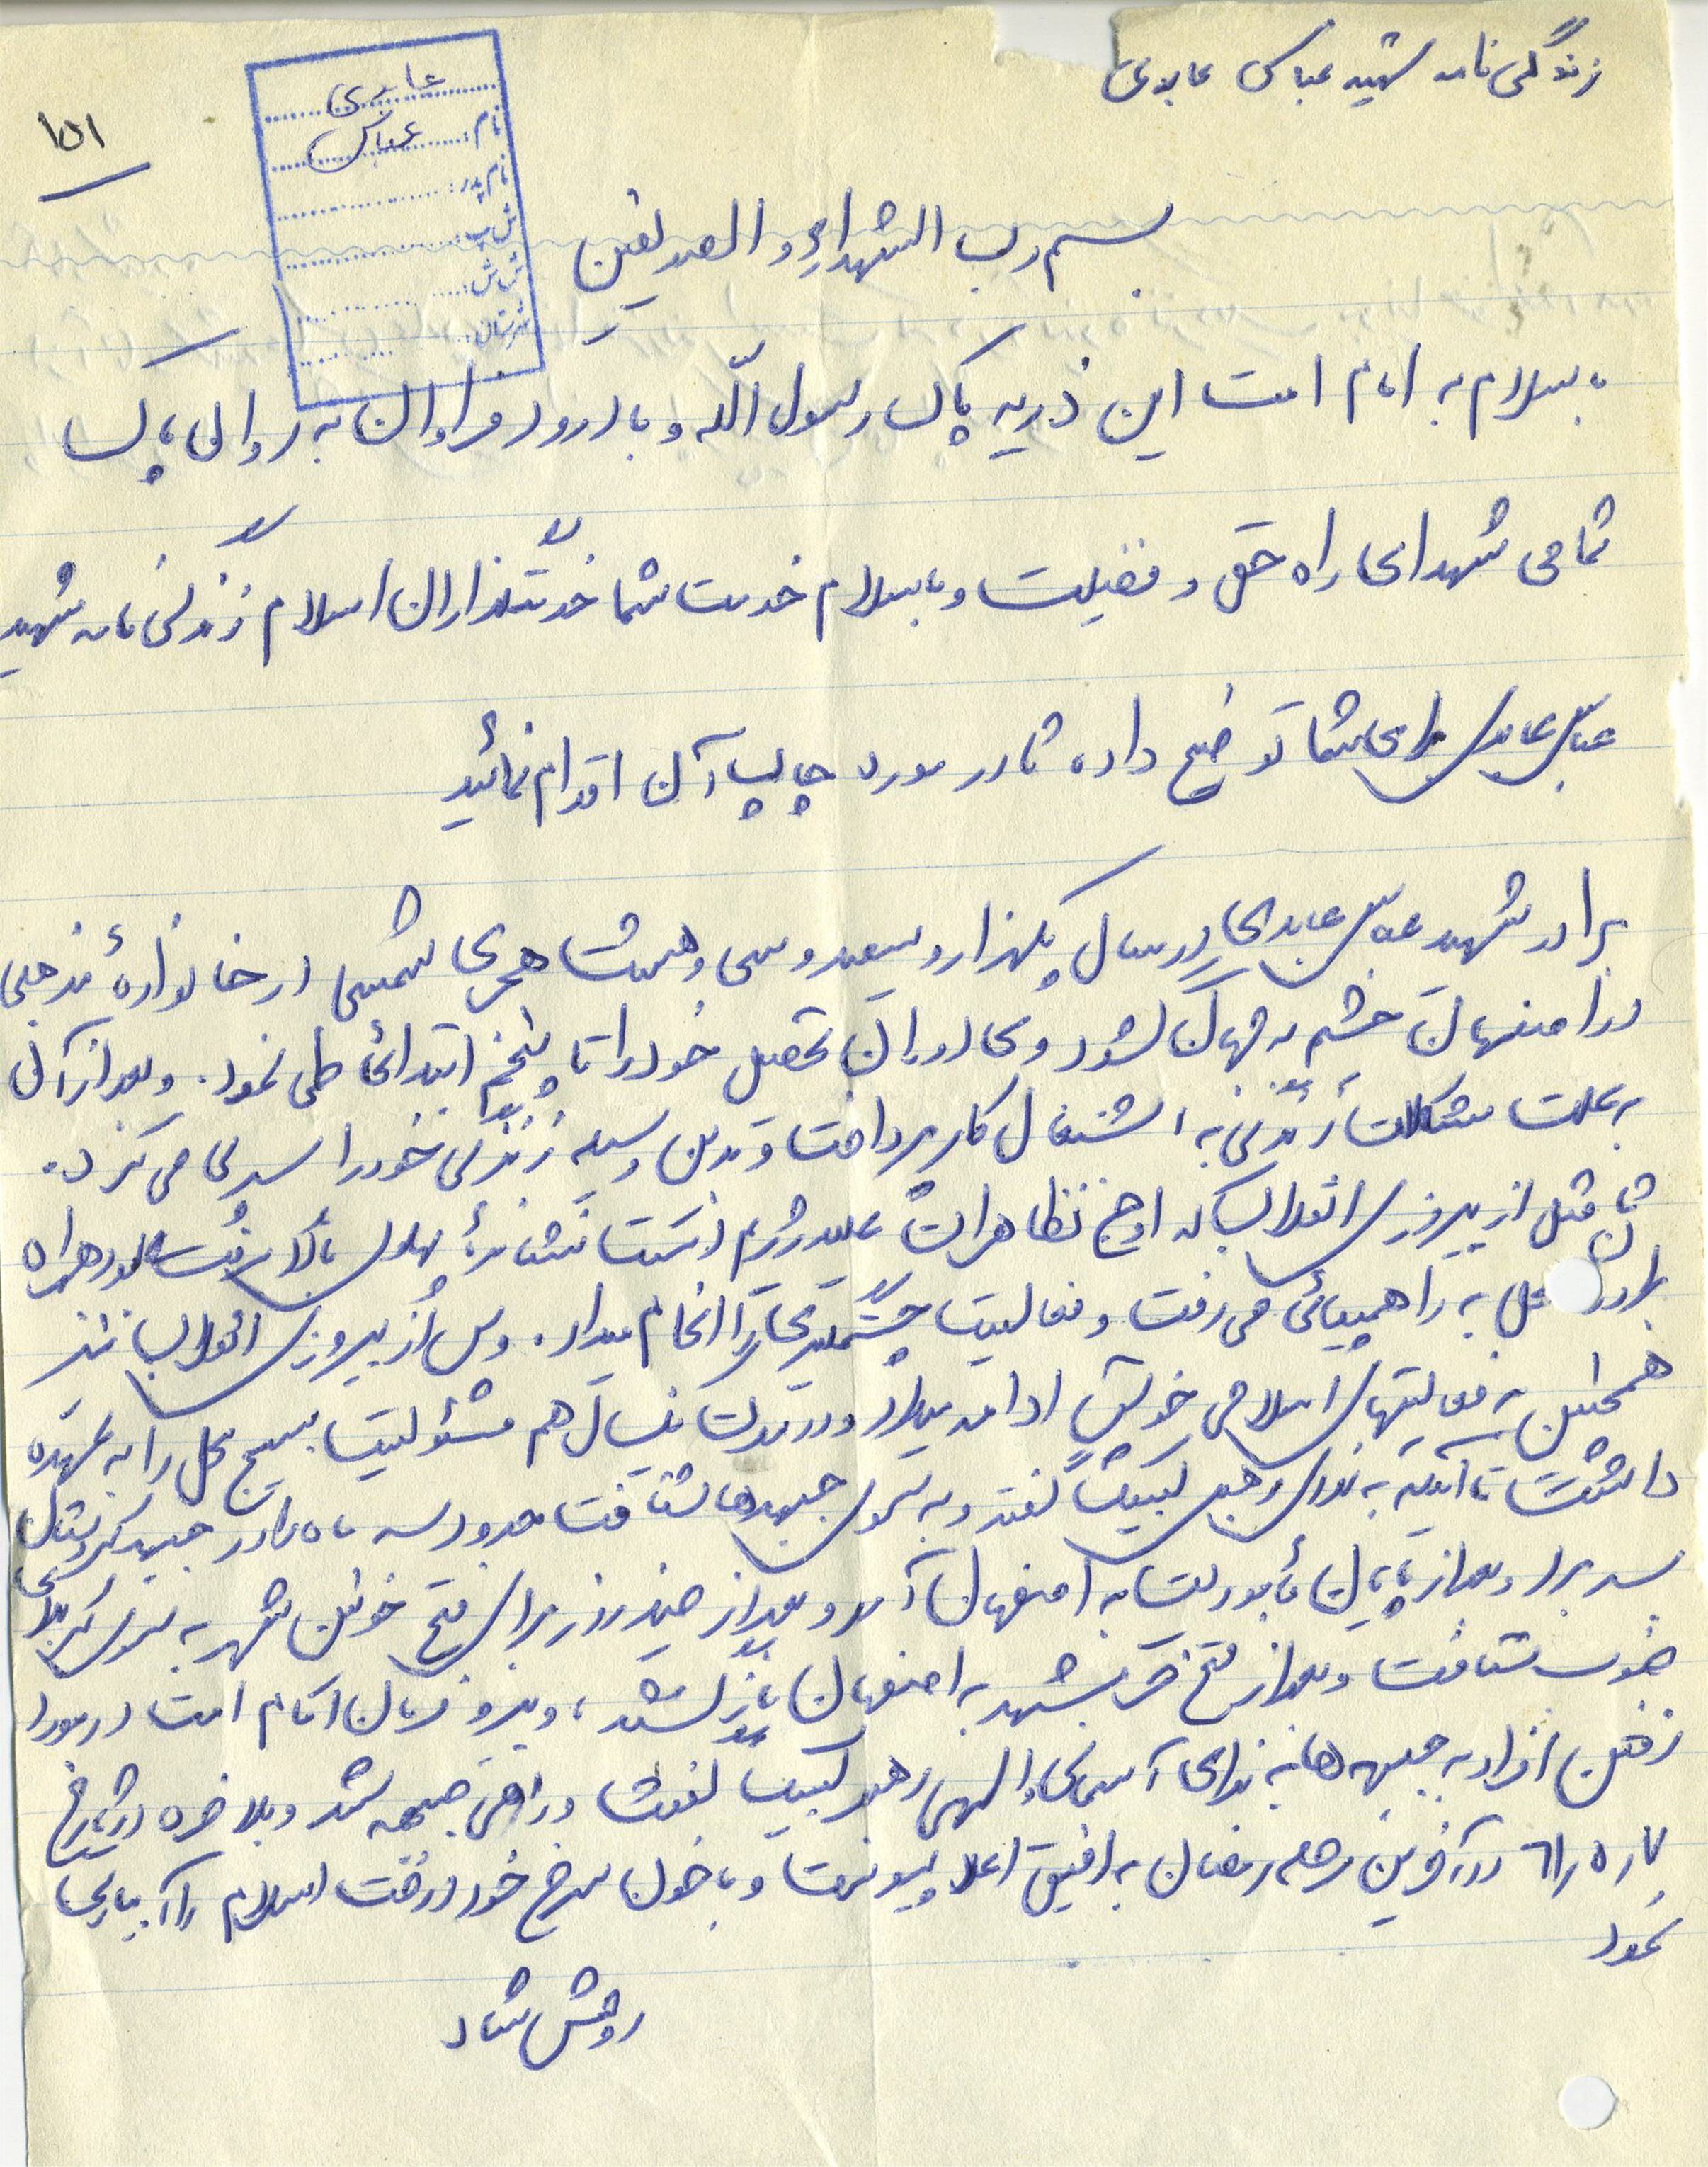 زندگی نامه شهید عباس عابدی
عابدی
نام: عباس
نام پدر:
ش پ:
ش ش:
شهرستان:
۱۵۱
بسم رب الشهداء و الصدیقین
با سلام به امام امت این ذریه پاک رسول الله و با درود فراوان به روان پاک
تمامی شهدای راه حق و فضیلت و با سلام خدمت شما خدمتگذاران اسلام زندگی نامه شهید
عباس عابدی برای شما توضیح داده تا در مورد چاپ آن اقدام نمائید
برادر شهید عباس عابدی در سال یکهزار و سیصد و سی و هشت هجری شمسی در خانواده مذهبی
در اصفهان چشم به جهان گشود وی دوران تحصیل خود را تا پنجم ابتدائی طی نمود. و بعد از آن
به علت مشکلات زندگی به اشتغال کار پرداخت و بدین وسیله زندگی خود را سپری می کرد.
تا قبل از پیروزی انقلاب که اوج تظاهرات علیه رژیم دست نشانده پهلوی بالا گرفت همراه
به راهپیمائی می رفت و فعالیت چشمگیری را انجام میداد. و پس از پیروزی انقلاب نیز
همچنین به فعالیتهای اسلامی خویش ادامه میداد و در مدت یکسال هم مسئولیت بسیج محل را به عهده
داشت تا آنکه به ندای رهبر لبیک گفته و به سوی جبهه‌ها شتافت حدود سه ماه را در جبهه کردستان
بسر برد و بعد از پایان مأموریت به اصفهان آمد و بعد از چند روز برای فتح خونین شهر به سوی کربلای
جنوب شتافت و بعد از فتح خرمشهر به اصفهان بازگشت، و پیرو فرمان امام امت در مورد
رفتن افراد به جبهه ها به ندای آسمانی و الهی رهبر لبیک گفت و راهی جبهه شد و بلاخره در تاریخ
۷ر۵ر۶۱ در آخرین مرحله رمضان به رفیق اعلا پیوست و با خون سرخ خود درخت اسلام را آبیاری
نمود
روحش شاد